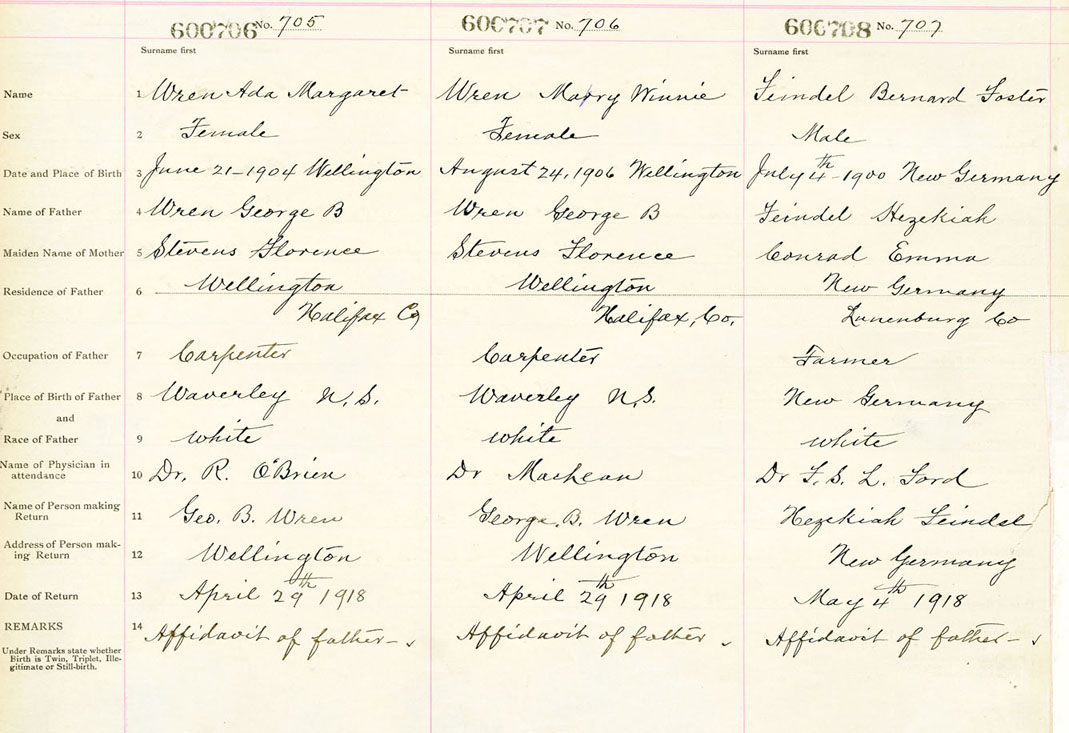 600706 No. 705
600707 No. 706
600708 No. 707
Surname first Surname first Surname first
Name 1 Wren Ada Margaret Wren Marry Winnie Feindel Bernard Foster
Sex 2 Female Female Male
Date and Place of Birth 3 June 21-1904 Wellington August 24, 1906 Wellington July 4th 1900 New Germany
Name of Father 4 Wren George B Wren George B Feindel Hezekiah
Maiden Name of Mother 5 Stevens Florence Stevens Florence Conrad Emma
Residence of Father 6 Wellington Wellington New Germany
Halifax Co Halifax, Co. Lunenburg Co
Occupation of Father 7 Carpenter Carpenter Farmer
Place of Birth of Father 8 Waverley N.S. Waverley N.S. New Germany
and
Race of Father 9 white white white
Name of Physician in
attendance 10 Dr. R. O'Brien Dr Mackean Dr F. S. L. Ford
Name of Person making
Return 11 Geo. B. Wren George. B. Wren Hezekiah Feindel
Address of Person mak-
ing Return 12 Wellington Wellington New Germany
Date of Return 13 April 29th 1918 April 29th 1918 May 4th 1918
REMARKS 14 Affidavit of father- Affidavit of father Affidavit of father-
Under Remarks state whether
Birth is Twin, Triplet, Ille-
gitimate or Still-birth.